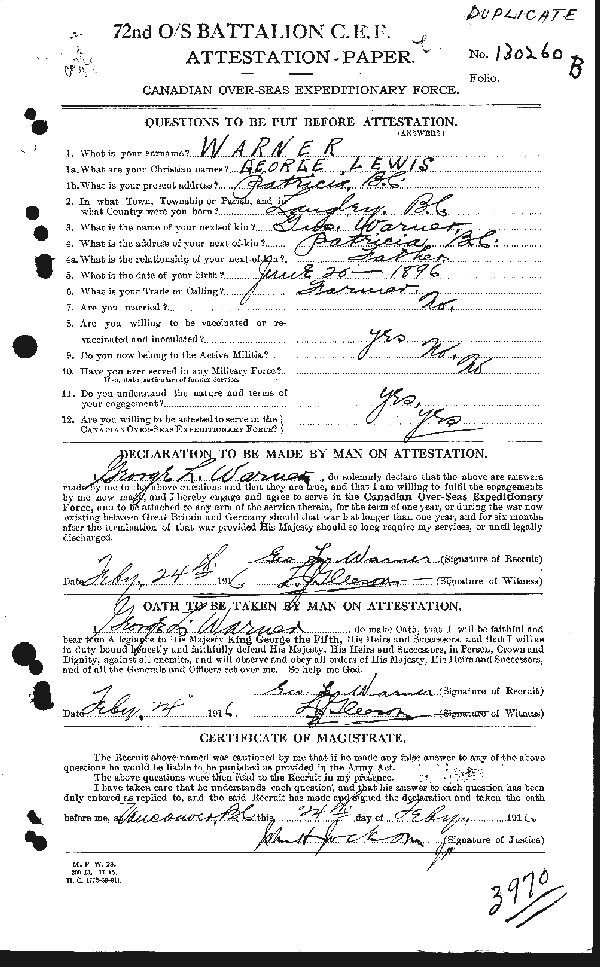 DUPLICATE
72nd O/S BATTALION C.E.F.
ATTESTATION PAPER.
No. 130260 B
Folio.
CANADIAN OVER-SEAS EXPEDITIONARY FORCE.
QUESTIONS TO BE PUT BEFORE ATTESTATION.
(ANSWERS)
1. What is your surname? WARNER
1a. What are your Christian names? GEORGE LEWIS
1b. What is your present address? Patricia B.C.
2. In what Town, Township or Parish, and in
what Country were you born? Langley. B.C.
3. What is the name of your next-of-kin? Geo. Warner,
4. What is the address of your next-of-kin? Patricia, B.C.
4a. What is the relationship of your next-of-kin? Father
5. What is the date of your birth? June 20 — 1896
6. What is your Trade or Calling? Farmer.
7. Are you married? No.
8. Are you willing to be vaccinated or re-
vaccinated and inoculated? yes
9. Do you now belong to the Active Militia? No.
10. Have you ever served in any Military Force? No
If so, state particulars of former Service.
11. Do you understand the nature and terms of
your engagement? yes,
12. Are you willing to be attested to serve in the
CANADIAN OVER-SEAS EXPEDITIONARY FORCE? yes
DECLARATION TO BE MADE BY MAN ON ATTESTATION.
I, George L. Warner, do solemnly declare that the above are answers
made by me to the above questions and that they are true, and that I am willing to fulfil the engagements
by me now made, and I hereby engage and agree to serve in the Canadian Over-Seas Expeditionary
Force, and to be attached to any arm of the service therein, for the term of one year, or during the war now
existing between Great Britain and Germany should that war last longer than one year, and for six months
after the termination of that war provided His Majesty should so require my services, or until legally
discharged.
Geo L. Warner (Signature of Recruit)
Date Feby. 24th 1916 L J Gleeson (Signature of Witness)
OATH TO BE TAKEN BY MAN ON ATTESTATION.
I, George L. Warner, do make Oath, that I will be faithful and
bear true Allegiance to His Majesty King George the Fifth, His Heirs and Successors, and that I will as
in duty bound honestly and faithfully defend His Majesty, His Heirs and Successors, in Person, Crown and
Dignity, against all enemies, and will observe and obey all orders of His Majesty, His Heirs and Successors,
and of all the Generals and Officers set over me. So help me God.
Geo L. Warner (Signature of Recruit)
Date Feby. 24 1916 L J Gleeson (Signature of Witness)
CERTIFICATE OF MAGISTRATE.
The Recruit above-named was cautioned by me that if he made any false answer to any of the above
questions he would be liable to be punished as provided in the Army Act.
The above questions were then read to the Recruit in my presence.
I have taken care that he understands each question, and that his answer to each question has been
duly entered as replied to, and the said Recruit has made and signed the declaration and taken the oath
before me, at Vancouver, B.C. this 24th day of Feby. 1916
(Signature of Justice)
M. F. W. 23.
3970